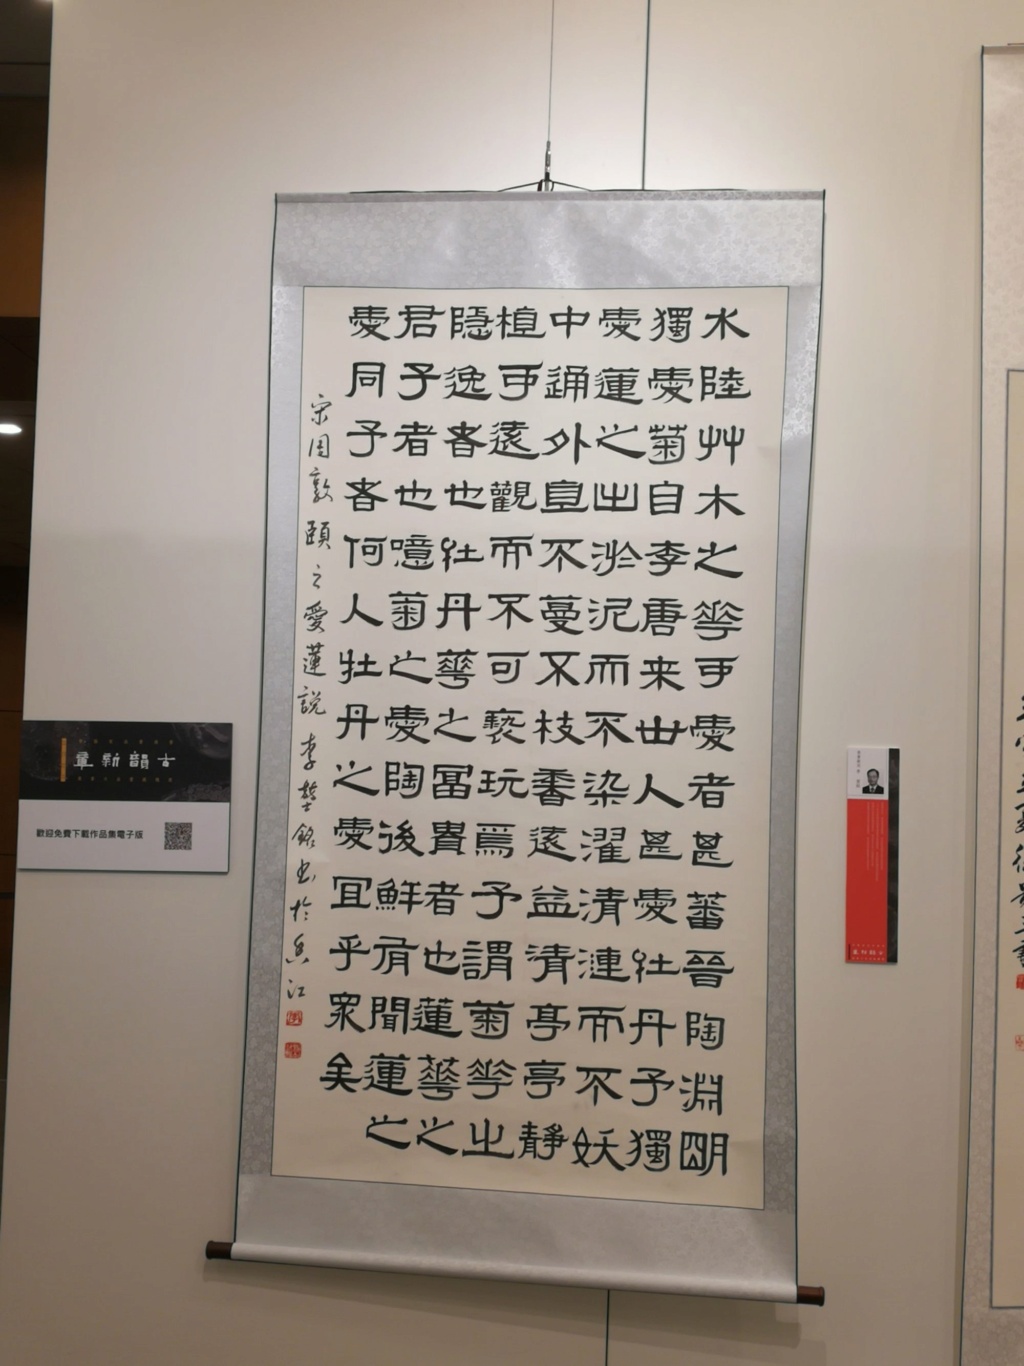 水陸艸木之華可愛者甚蕃晉陶淵明
獨愛菊自李唐来世人甚愛牡丹予獨
愛蓮之出淤泥而不染濯清漣而不妖
中通外直不蔓不枝香遠益清亭亭靜
植可遠觀而不可褻玩焉予謂菊華之
隱逸者也牡丹華之富貴者也蓮華之
君子者也噫菊之愛陶後鮮有聞蓮之
愛同予者何人牡丹之愛宜乎眾矣
宋周敦頤之愛蓮說 李 錄書於香江
古韻新章
歡迎免費下載作品集電子版
古韻新章